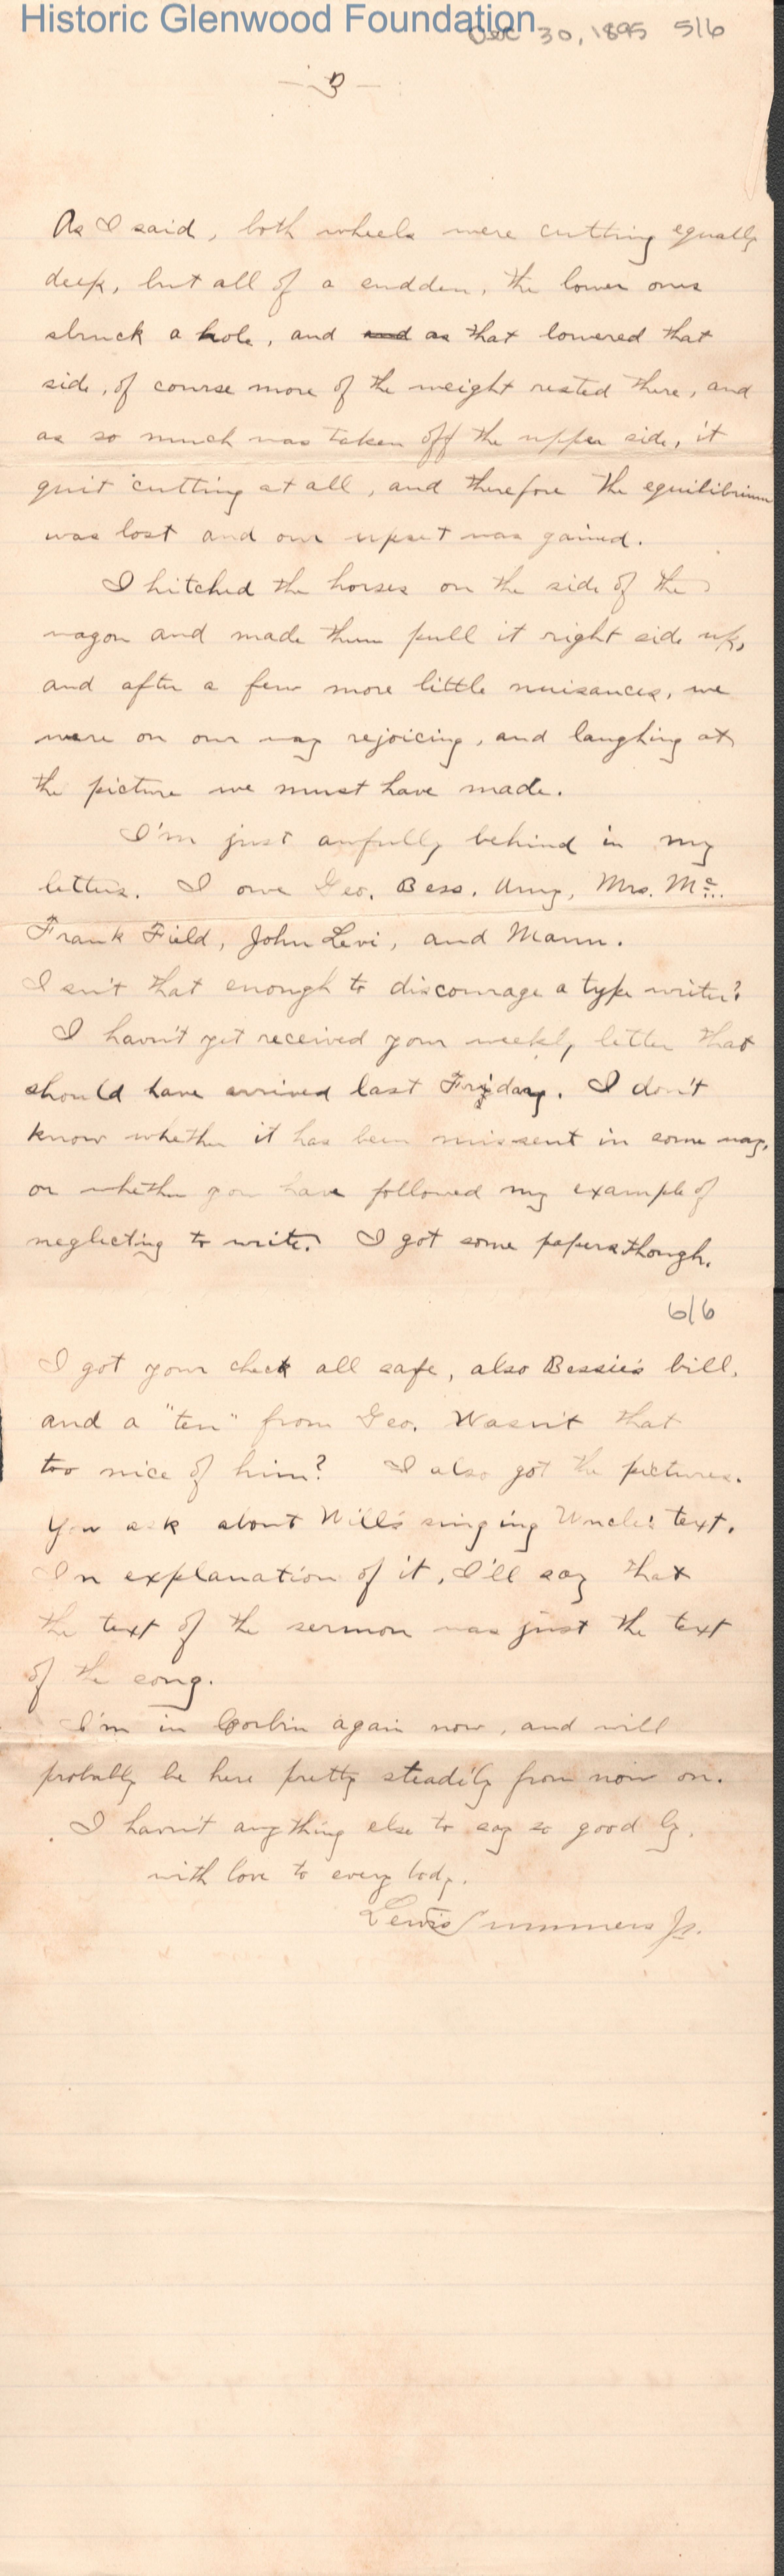 Historic Glenwood Foundation
Dec 30, 1895 5/6
- 3 -
As I said, both wheels were cutting equally
deep, but all of a sudden, the lower ones
struck a hole, and and as that lowered that
side, of course more of the weight rested there, and
as so much was taken off the upper side, it
quit cutting at all, and therefore the equilibrium
was lost and our upset was gained.
I hitched the horses on the side of the
wagon and made them pull it right side up,
and after a few more little nuisances, we
were on our way rejoicing, and laughing at
the picture we must have made.
I'm just awfully behind in my
letters. I owe Geo, Bess, Amy, Mrs. Mc.
Frank Field, John Levi, and Mann.
Isn't that enough to discourage a type writer?
I havn't yet received your weekly letter that
should have arrived last Friday. I don't
know whether it has been missent in some way,
or whether you have followed my example of
neglecting to write. I got some papers though.
6/6
I got your check all safe, also Bessie's bill,
and a "ten" from Geo. Wasn't that
too nice of him? I also got the pictures.
You ask about Will's singing Uncle's text.
In explanation of it, I'll say that
the text of the sermon was just the text
of the song.
I'm in Corbin again now, and will
probably be here pretty steadily from now on.
I havn't anything else to say so good by.
with love to every body.
Lewis Summers Jr.